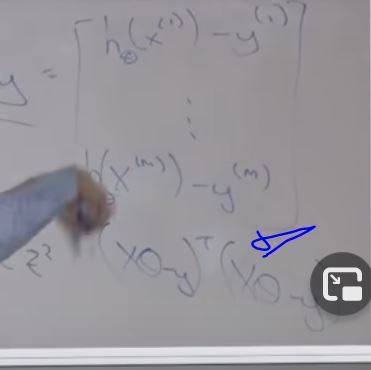 h_θ(x^(1)) - y^(1)
y = ⋮
h_θ(x^(m)) - y^(m)
z² (Xθ-y)^T (Xθ-y